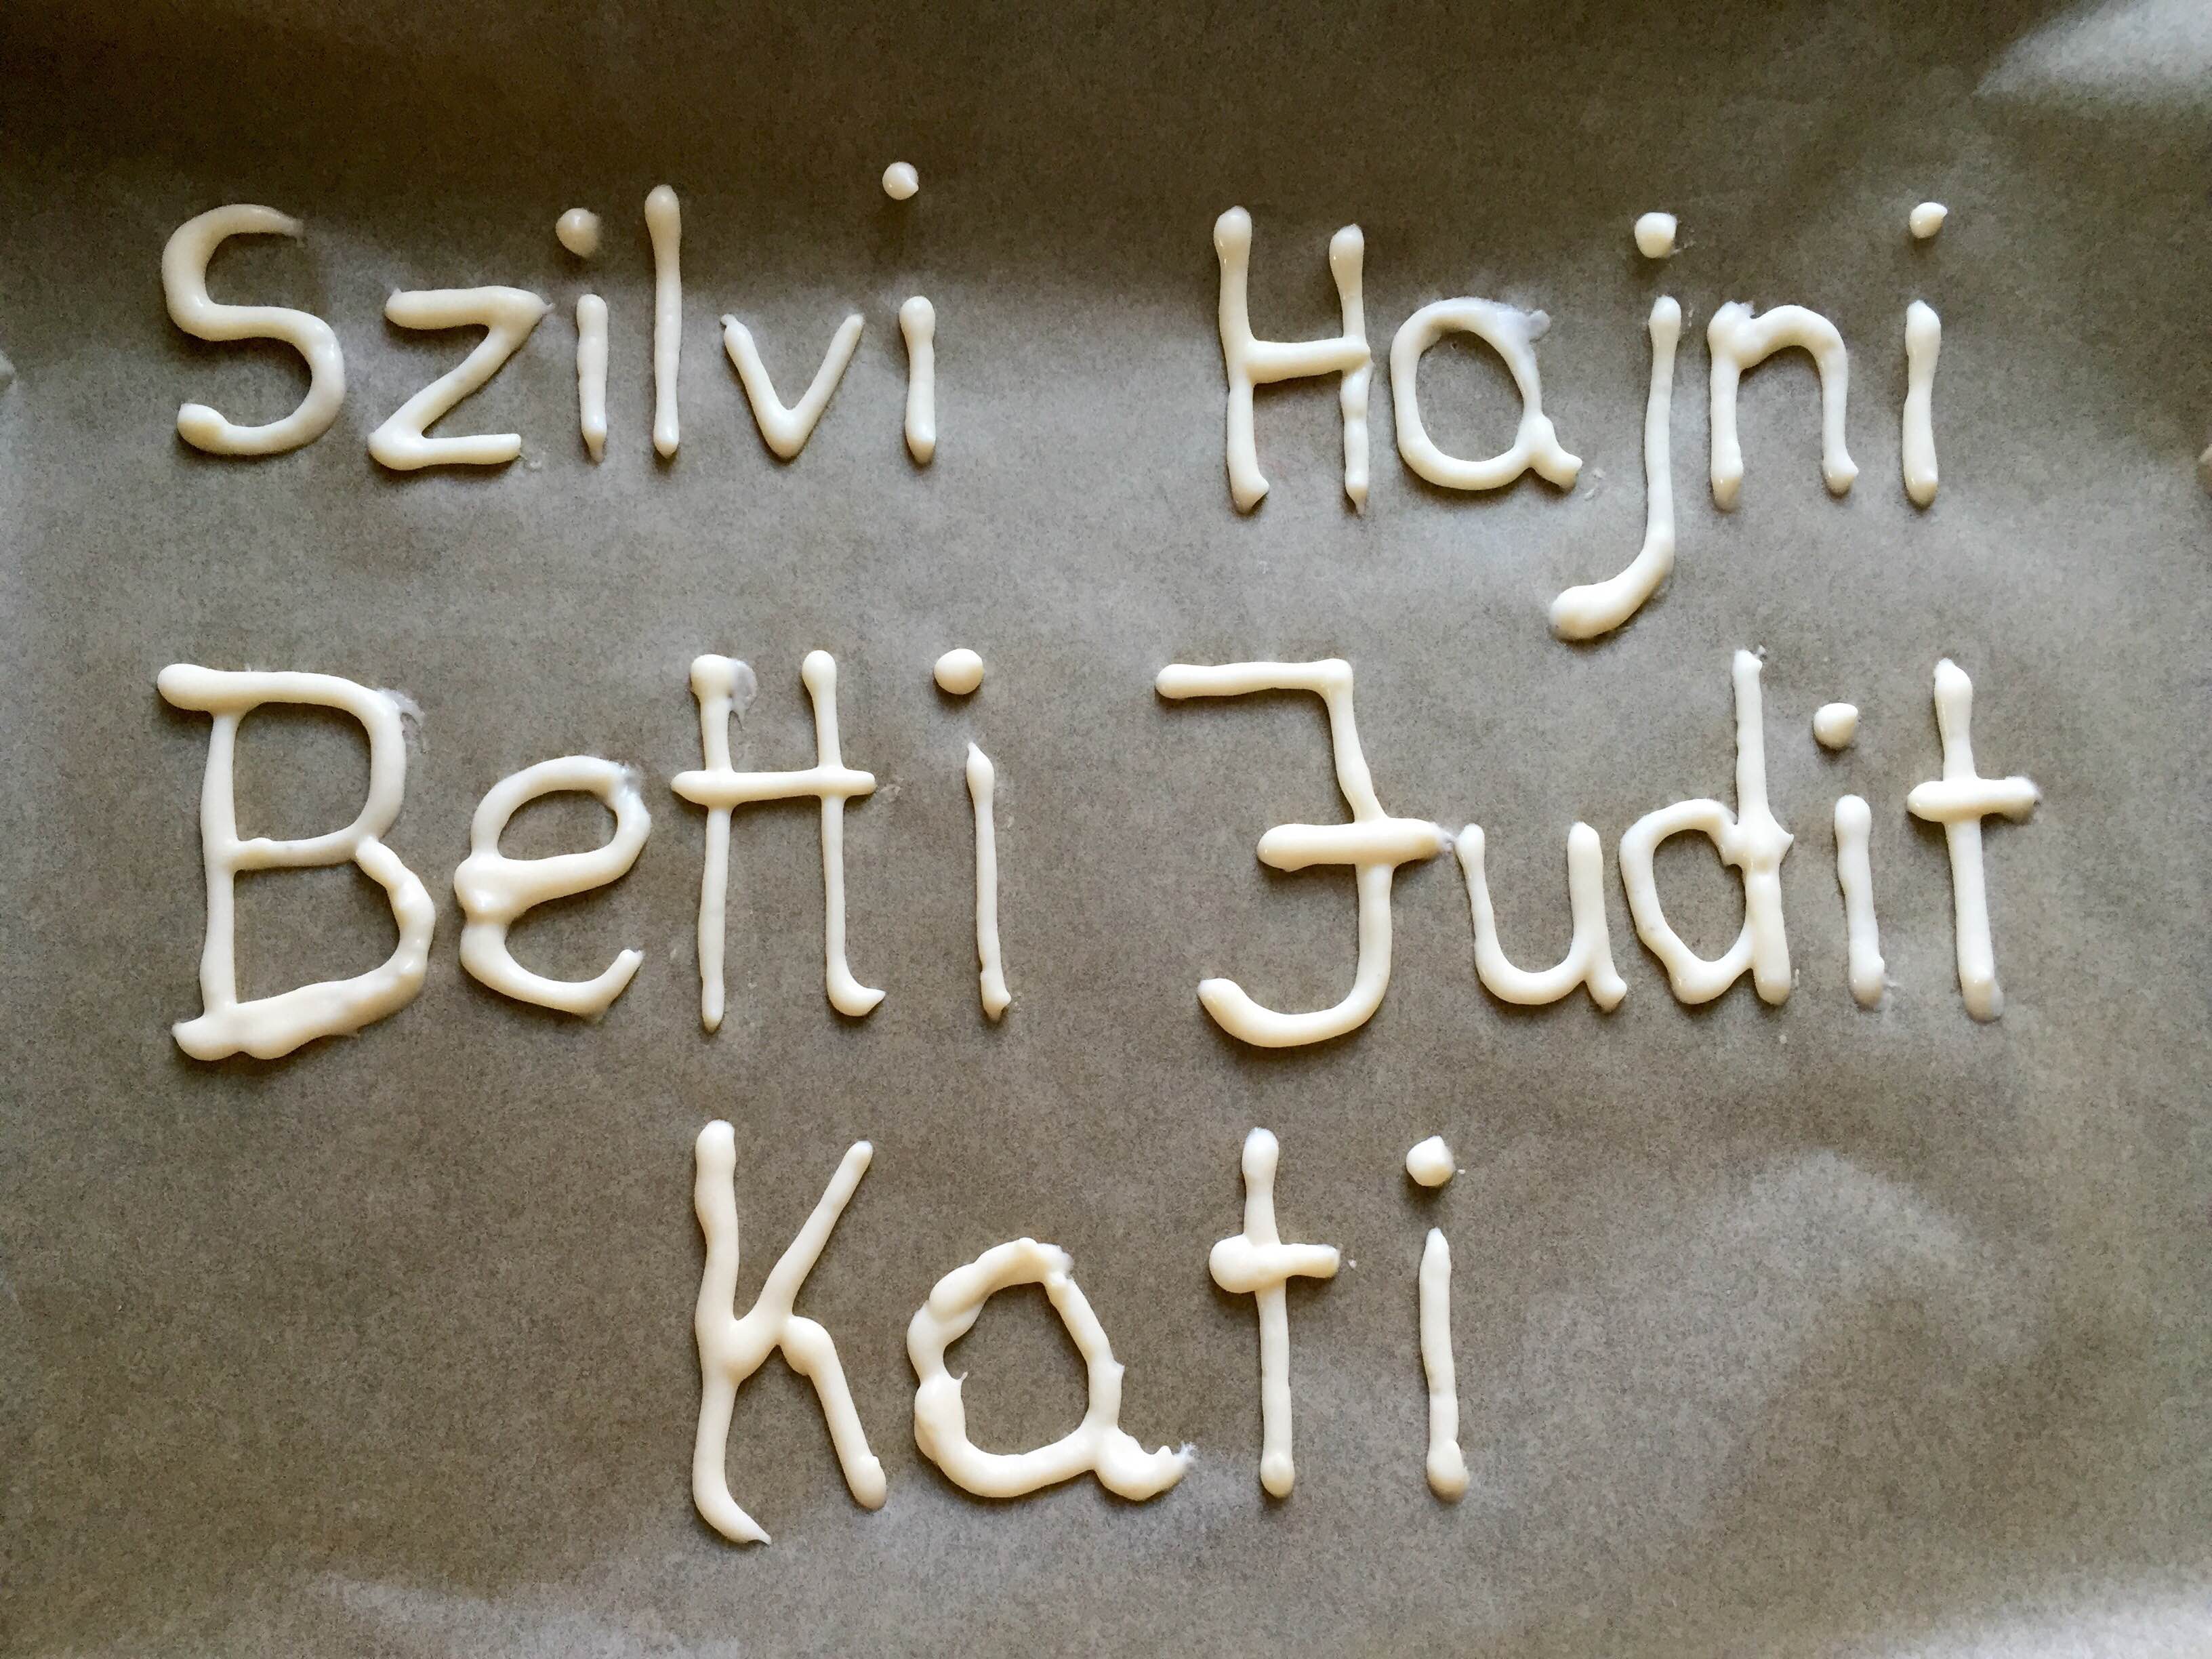 Szilvi Hajni
Betti Judit
Kati